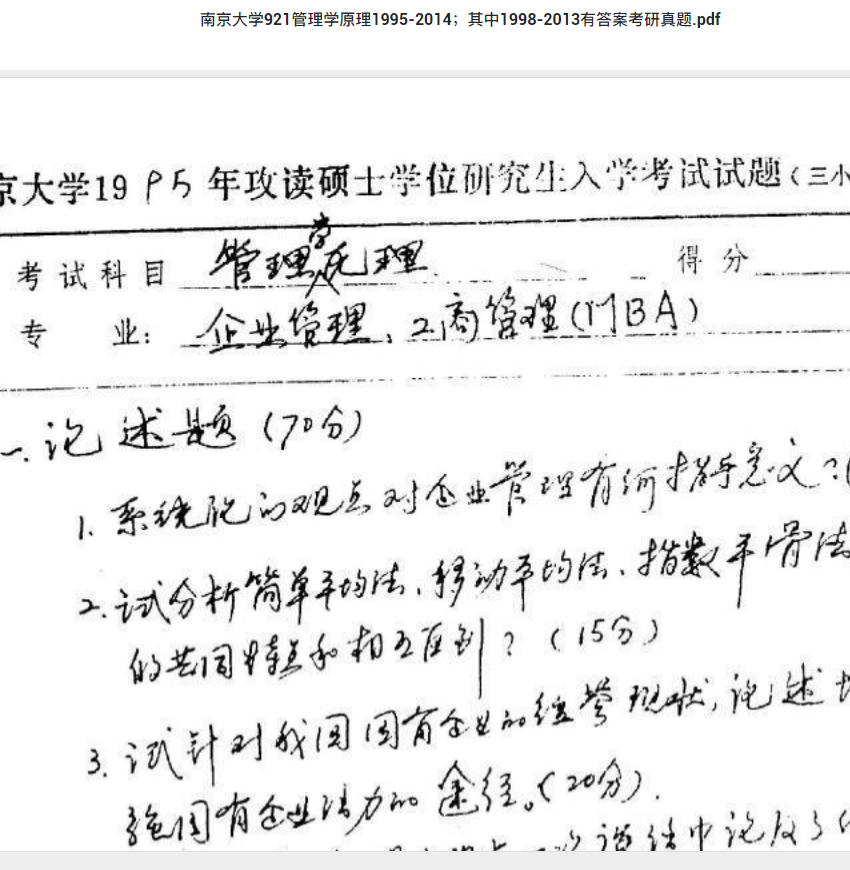 南京大学921管理学原理1995-2014；其中1998-2013有答案考研真题.pdf
京大学1995年攻读硕士学位研究生入学考试试题（三小
考试科目 管理学原理 得分
专 业： 企业管理、工商管理（MBA）
一. 论述题（70分）
1. 系统论的观点对企业管理有何指导意义？（
2. 试分析简单平均法、移动平均法、指数平滑法
的共同特点和相互区别？（15分）
3. 试针对我国国有企业的经营现状，论述增
强国有企业活力的途径。（20分）.
结中论及了